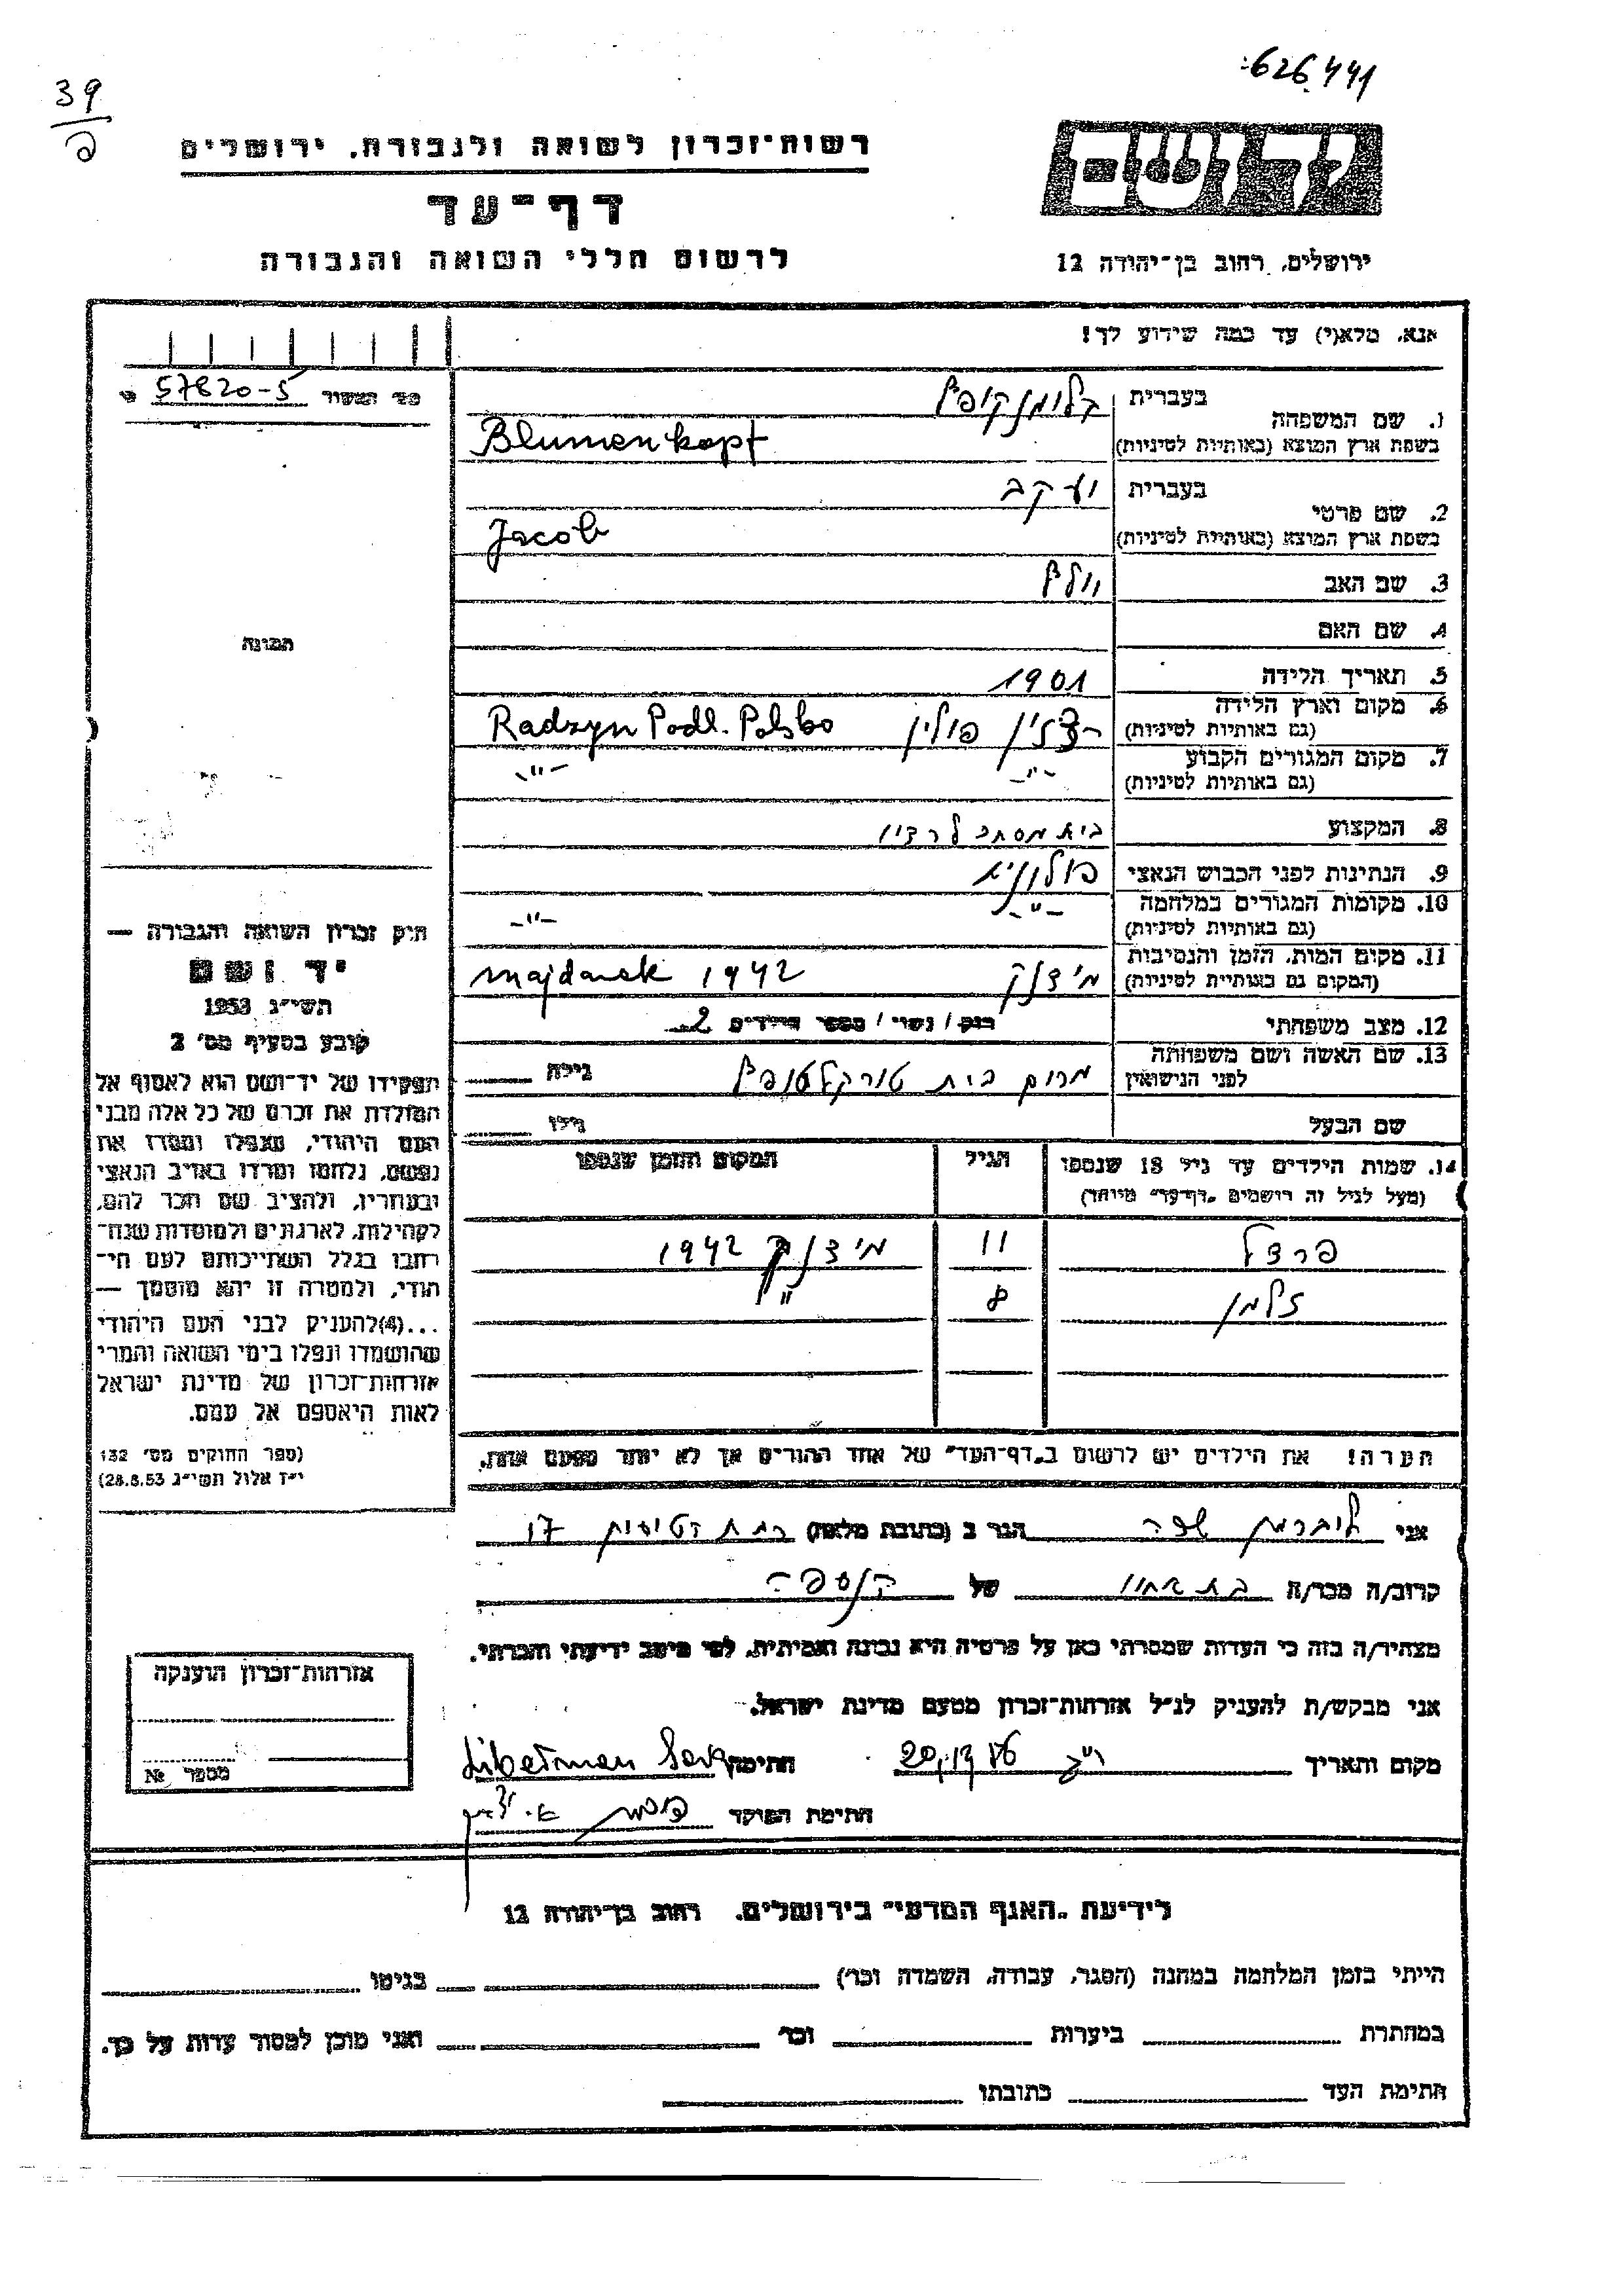 626441
39
רשות־זכרון לשואה ולגבורה, ירושלים
דף־עד
לרשום חללי השואה והגבורה
ירושלים, רחוב בן־יהודה 12
אנא, מלא(י) עד כמה שידוע לך!
מס׳ 57820-5
בעברית בלומנקופף
1. שם המשפחה
בשפת ארץ המוצא (באותיות לטיניות) Blumenkopf
בעברית יעקב
2. שם פרטי
בשפת ארץ המוצא (באותיות לטיניות) Jacob
3. שם האב וולף
4. שם האם
תמונה
5. תאריך הלידה 1901
6. מקום וארץ הלידה
(גם באותיות לטיניות) פולין Radzyn Podl. Polsko
7. מקום המגורים הקבוע -"- -"-
(גם באותיות לטיניות)
8. המקצוע בית מסחר לרדיו
9. הנתינות לפני הכבוש הנאצי פולונית
10. מקומות המגורים במלחמה -"- -"-
(גם באותיות לטיניות)
11. מקום המות, הזמן והנסיבות
(המקום גם באותיות לטיניות) מידנק Majdanek 1942
12. מצב משפחתי רווק / נשוי / מספר הילדים 2
13. שם האשה ושם משפחתה
לפני הנישואין מרים בית גילה
שם הבעל גילו
14. שמות הילדים עד גיל 18 שנספו הגיל המקום והזמן שנספו
(מעל לגיל זה רושמים "דף־עד" מיוחד)
11 מידנק 1942
זלמן 8 "
הערה! את הילדים יש לרשום ב"דף־העד" של אחד ההורים אך לא יותר מפעם אחת.
חוק זכרון השואה והגבורה —
יד ושם
תשי״ג 1953
קובע בסעיף מס׳ 2
תפקידו של יד־ושם הוא לאסוף אל
המולדת את זכרם של כל אלה מבני
העם היהודי, שנפלו ומסרו את
נפשם, נלחמו ומרדו באויב הנאצי
ובעוזריו, ולהציב שם וזכר להם,
לקהילות, לארגונים ולמוסדות שנח־
רבו בגלל השתייכותם לעם הי־
הודי, ולמטרה זו יהא מוסמך —
...(4)להעניק לבני העם היהודי
שהושמדו ונפלו בימי השואה והמרי
אזרחות־זכרון של מדינת ישראל
לאות היאספם אל עמם.
(ספר החוקים מס׳ 132
י״ז אלול תשי״ג 28.8.53)
אני ליברמן שרה הגר ב (כתובת מלאה) 17
קרוב/ה מכר/ה בת אחיו של הנספה
מצהיר/ה בזה כי העדות שמסרתי כאן על פרטיה היא נכונה ואמיתית, לפי מיטב ידיעתי והכרתי.
אני מבקש/ת להעניק לנ״ל אזרחות־זכרון מטעם מדינת ישראל.
מקום ותאריך חתימה Liberman Sara
חתימת הפוקד
אזרחות־זכרון הוענקה
מספר №
לידיעת "האגף המדעי" בירושלים, רחוב בן־יהודה 12
הייתי בזמן המלחמה במחנה (הסגר, עבודה, השמדה וכו׳) בגיטו
במחתרת ביערות וכו׳ ואני מוכן למסור עדות על כך.
חתימת העד כתובתו